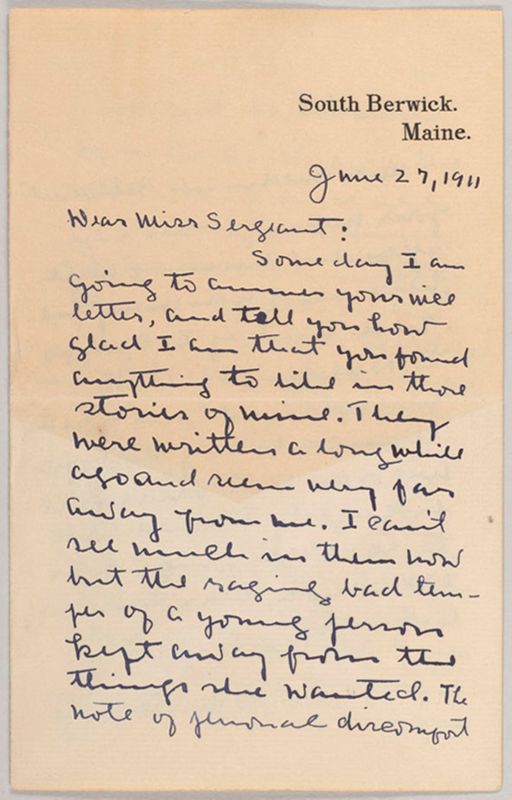 South Berwick.
Maine.
June 27, 1911
Dear Miss Sergeant:
Some day I am
going to answer your nice
letter, and tell you how
glad I am that you found
anything to like in those
stories of mine. They
were written a long while
ago and seem very far
away from me. I can't
see much in them now
but the raging bad tem-
per of a young person
kept away from the
things she wanted. The
note of personal discomfort